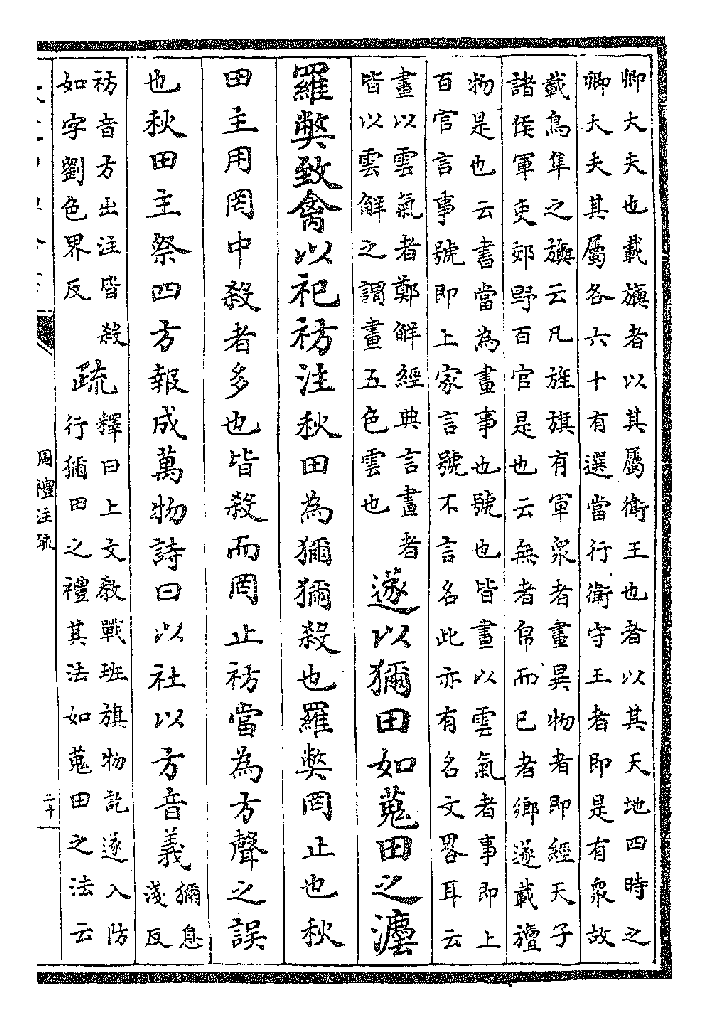 卿大夫也載旟者以其屬衛王也者以其天地四時之
卿大夫其屬各六十有選當行衛守王者即是有衆故
載鳥隼之旟云凡旌旗有軍衆者畫異物者即經天子
諸侯軍吏郊野百官是也云無者帛而已者鄉遂載旜
物是也云書當為畫事也號也皆畫以雲氣者事即上
百官言事號即上家言號不言名此亦有名文畧耳云
畫以雲氣者鄭解經典言畫者
皆以雲解之謂畫五色雲也
遂以獮田如蒐田之灋
羅弊致禽以祀祊注秋田為獮獮殺也羅弊罔止也秋
田主用罔中殺者多也皆殺而罔止祊當為方聲之誤
也秋田主祭四方報成萬物詩曰以社以方音義
獮息
淺反
祊音方出注皆 殺
如字劉色界反
疏
釋曰上文教戰班旗物訖遂入防
行獮田之禮其法如蒐田之法云
周禮注疏
二十